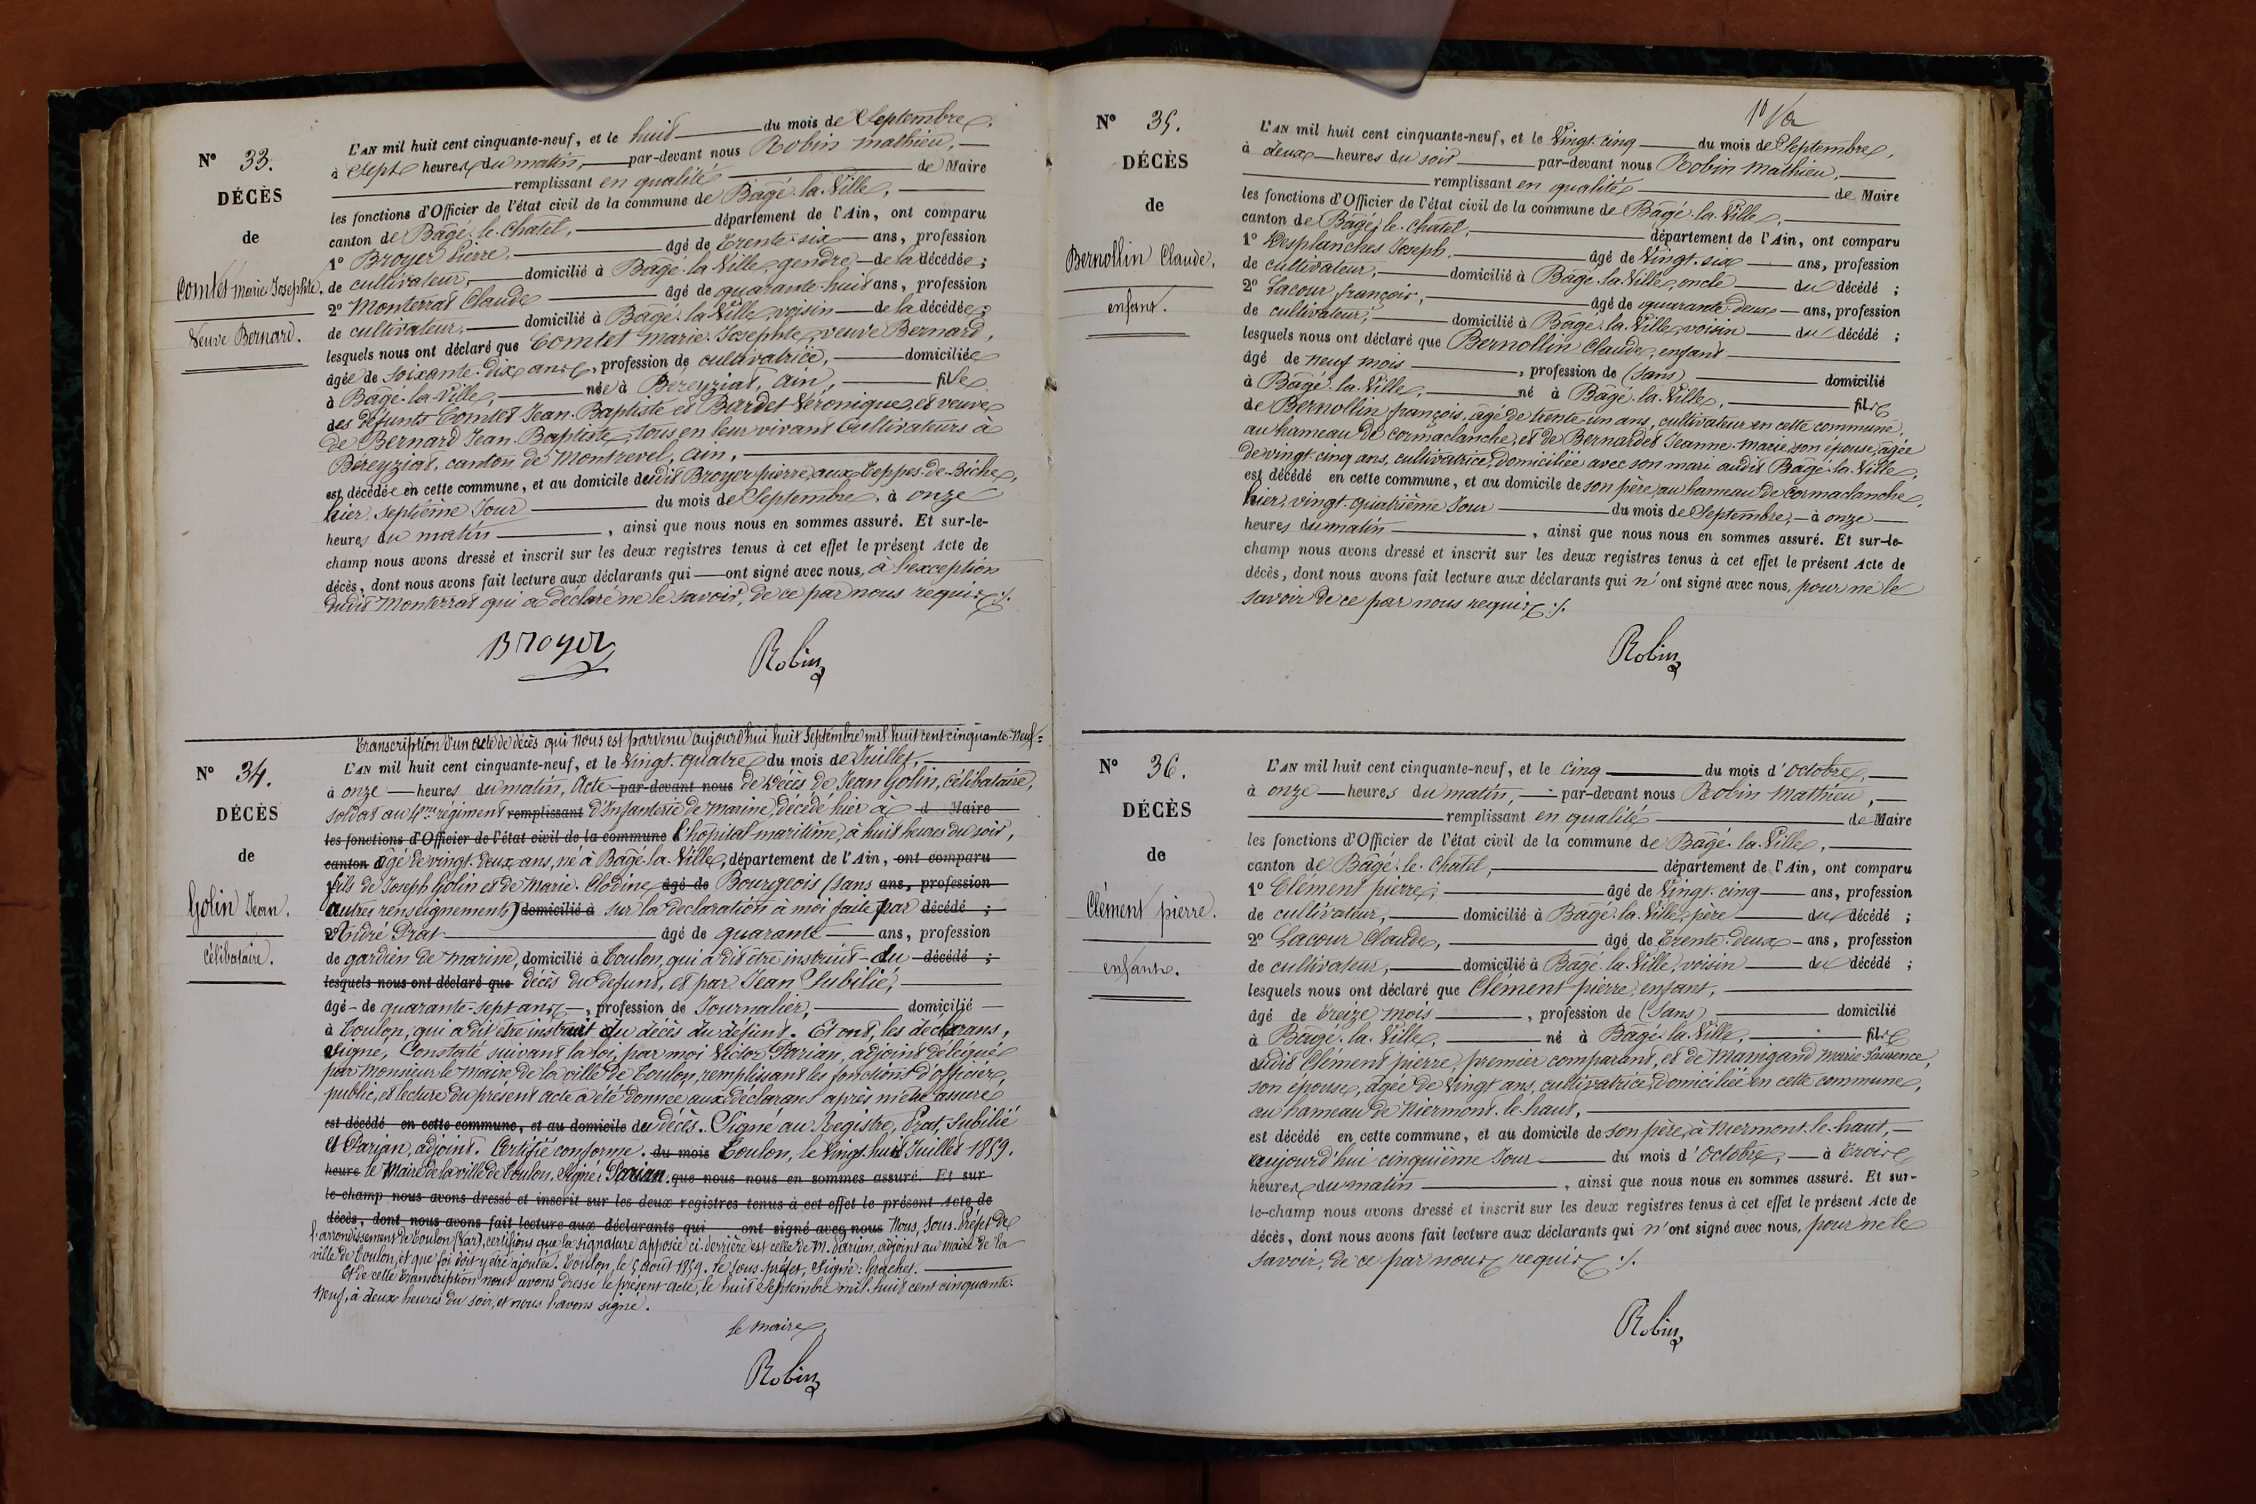 N° 33.
DÉCÈS
de
Comtet marie Josephte.
Veuve Bernard.
L'AN mil huit cent cinquante-neuf, et le huit du mois de Septembre,
à Sept heures du matin, par-devant nous Robin mathieu,
remplissant en qualité de Maire
les fonctions d'Officier de l'état civil de la commune de Bâgé-la-Ville,
canton de Bâgé-le-Chatel, département de l'Ain, ont comparu
1° Broyer Pierre, âgé de trente-six ans, profession
de cultivateur, domicilié à Bâgé-la-Ville, gendre de la décédée;
2° Monterrat Claude âgé de quarante-huit ans, profession
de cultivateur, domicilié à Bâgé-la-Ville, voisin de la décédée;
lesquels nous ont déclaré que Comtet marie-Josephte, veuve Bernard,
âgée de soixante-dix ans, profession de cultivatrice, domiciliée
à Bâgé-la-Ville, née à Béreyziat, ain, fille
des défunts Comtet Jean-Baptiste et Bardet Véronique, et veuve
de Bernard Jean-Baptiste, tous en leur vivant Cultivateurs à
Béreyziat, canton de Montrevel, ain,
est décédée en cette commune, et au domicile dudit Broyer pierre, aux Teppes-de-Biche,
hier, septième Jour du mois de Septembre, à onze
heures du matin, ainsi que nous nous en sommes assuré. Et sur-le-
champ nous avons dressé et inscrit sur les deux registres tenus à cet effet le présent Acte de
décès, dont nous avons fait lecture aux déclarants qui ont signé avec nous, à l'exception
dudit Monterrat qui a déclaré ne le savoir, de ce par nous requis ./.
Broyer Robin
N° 34.
DÉCÈS
de
Golin Jean.
célibataire.
Transcription d'un acte de décès qui nous est parvenu aujourd'hui huit Septembre mil huit cent cinquante-neuf=
L'AN mil huit cent cinquante-neuf, et le Vingt-quatre du mois de Juillet,
à onze heures du matin, Acte par-devant nous de Décès de Jean Golin, célibataire,
soldat au 4me régiment remplissant d'Infanterie de marine, décédé hier à d Maire
les fonctions d'Officier de l'état civil de la commune l'hopital maritime, à huit heures du soir,
canton âgé de vingt-deux ans, né à Bâgé-la-Ville, département de l'Ain, ont comparu
fils de Joseph Golin et de Marie-Clodine âgé de Bourgeois (sans ans, profession
autres renseignements) domicilié à sur la declaration à moi faite par décédé ;
2° André Prat âgé de quarante ans, profession
de gardien de marine, domicilié à Toulon, qui a dit être instruit du décédé ;
lesquels nous ont déclaré que décès du defunt, et par Jean Subilié,
âgé de quarante-sept ans, profession de Journalier, domicilié
à Toulon, qui a dit être instruit du décès du défunt. Et ont, les déclarans,
signé, Constaté suivant la loi, par moi Victor Parian, adjoint délégué
par Monsieur le maire de la ville de Toulon, remplissant les fonctions d'officier
public, et lecture du présent acte a été donnée aux déclarans après m'être assuré
est décédé en cette commune, et au domicile de du décès. Signé au Registre, Prat, Subilié
et Parian, adjoint. Certifié conforme. du mois Toulon, le Vingt-huit Juillet 1859.
heure le Maire de la ville de Toulon, Signé: Parian. que nous nous en sommes assuré. Et sur
le-champ nous avons dressé et inscrit sur les deux registres tenus à cet effet le présent Acte de
décès, dont nous avons fait lecture aux déclarants qui ont signé avec nous Nous, Sous-Préfet de
l'arrondissement de Toulon (Var), certifions que la signature apposée ci-derrière est celle de M. Parian, adjoint au maire de la
ville de Toulon, et que foi doit y être ajoutée. Toulon, le 5 Août 1859. le Sous-préfet, Signé:
Et de cette transcription nous avons dressé le présent acte, le huit Septembre mil huit cent cinquante-
neuf, à deux heures du soir, et nous l'avons signé.
Le maire,
Robin
N° 35.
DÉCÈS
de
Bernollin Claude.
enfant.
L'AN mil huit cent cinquante-neuf, et le Vingt-cinq du mois de Septembre,
à deux heures du soir par-devant nous Robin mathieu,
remplissant en qualité de Maire
les fonctions d'Officier de l'état civil de la commune de Bâgé-la-Ville,
canton de Bâgé-le-Chatel, département de l'Ain, ont comparu
1° Desplanches Joseph, âgé de Vingt-six ans, profession
de cultivateur, domicilié à Bâgé-la-Ville, oncle du décédé ;
2° Lacour françois, âgé de quarante-deux ans, profession
de cultivateur, domicilié à Bâgé-la-Ville, voisin du décédé ;
lesquels nous ont déclaré que Bernollin Claude, enfant
âgé de neuf mois, profession de (sans) domicilié
à Bâgé-la-Ville, né à Bâgé-la-Ville, fils
de Bernollin françois, âgé de trente-un ans, cultivateur en cette commune,
au hameau de Cormaclanche, et de Bernardet Jeanne-Marie, son épouse, âgée
de vingt-cinq ans, cultivatrice, domiciliée avec son mari audit Bâgé-la-Ville,
est décédé en cette commune, et au domicile de son père, au hameau de Cormaclanche,
hier, vingt-quatrième Jour du mois de Septembre, à onze
heures du matin, ainsi que nous nous en sommes assuré. Et sur-le-
champ nous avons dressé et inscrit sur les deux registres tenus à cet effet le présent Acte de
décès, dont nous avons fait lecture aux déclarants qui n'ont signé avec nous, pour ne le
savoir de ce par nous requis ./.
Robin
N° 36.
DÉCÈS
de
Clément pierre.
enfant.
L'AN mil huit cent cinquante-neuf, et le cinq du mois d'octobre,
à onze heures du matin, par-devant nous Robin Mathieu,
remplissant en qualité de Maire
les fonctions d'Officier de l'état civil de la commune de Bâgé-la-Ville,
canton de Bâgé-le-Chatel, département de l'Ain, ont comparu
1° Clément pierre, âgé de Vingt-cinq ans, profession
de cultivateur, domicilié à Bâgé-la-Ville, père du décédé ;
2° Lacour Claude, âgé de trente-deux ans, profession
de cultivateur, domicilié à Bâgé-la-Ville, voisin du décédé ;
lesquels nous ont déclaré que Clément pierre, enfant,
âgé de treize mois, profession de (sans) domicilié
à Bâgé-la-Ville, né à Bâgé-la-Ville, fils
dudit Clément pierre, premier comparant, et de Manigand Marie-Laurence,
son épouse, âgée de Vingt ans, cultivatrice, domiciliée en cette commune,
au hameau de Niermont-le-haut,
est décédé en cette commune, et au domicile de son père, à Niermont-le-haut,
aujourd'hui cinquième Jour du mois d'octobre, à trois
heures du matin, ainsi que nous nous en sommes assuré. Et sur-
le-champ nous avons dressé et inscrit sur les deux registres tenus à cet effet le présent Acte de
décès, dont nous avons fait lecture aux déclarants qui n'ont signé avec nous, pour ne le
savoir, de ce par nous requis ./.
Robin